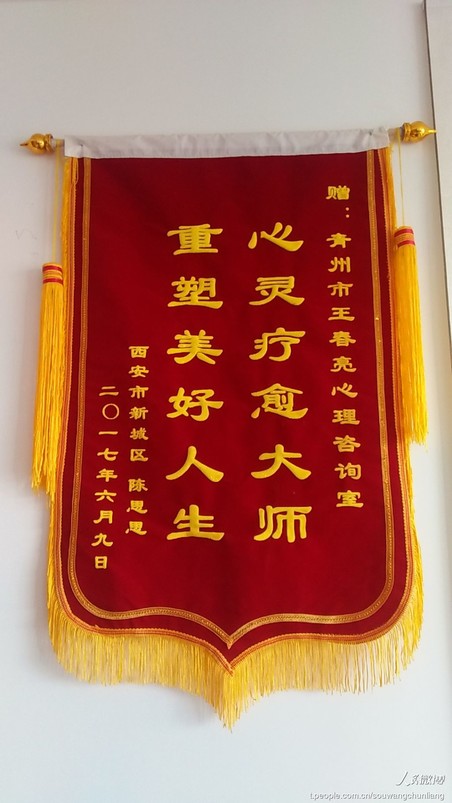 赠：青州市王春亮心理咨询室
心灵疗愈大师
重塑美好人生
西安市新城区 陈恩恩
二〇一七年六月九日
人民微博
t.people.com.cn/souwangchunliang